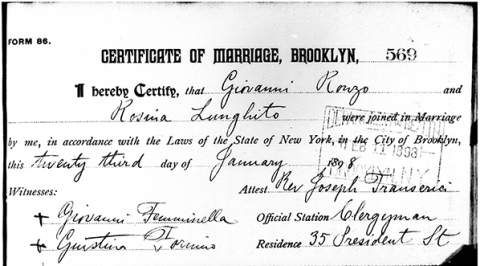 FORM 86.
CERTIFICATE OF MARRIAGE, BROOKLYN, 569
I hereby Certify, that Giovanni Ronzo and
Rosina Lunghito were joined in Marriage
by me, in accordance with the Laws of the State of New York, in the City of Brooklyn,
this twenty third day of January 1898
Witnesses: Attest Rev Joseph Transerici
+ Giovanni Femminella Official Station Clergyman
+ Residence 35 President St